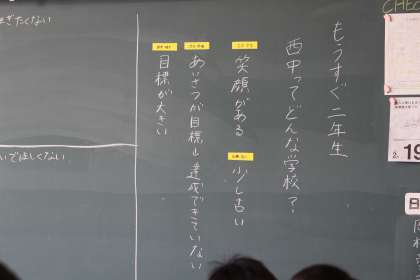 もうすぐ二年生
西中ってどんな学校?
笑顔がある
少し古い
あいさつが目標に達成できていない
目標が大きい
ぎたくない
いでほしくない
CHEC
2.
19
日